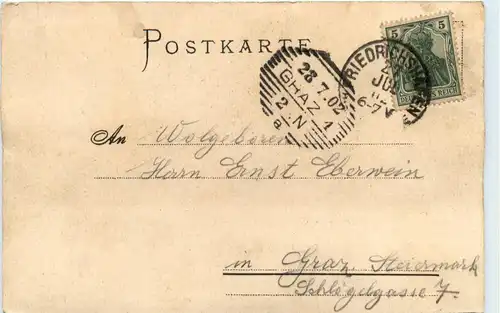 POSTKARTE
5 5
DEUTSCHES REICH
FRIEDRICHSHAFEN
JUL
6-7 V
28.7.02
GRAZ 1
2 N
a
An Wolgeboren
Herrn Ernst Eberwein
in Graz, Steiermark
Schlögelgasse 7.